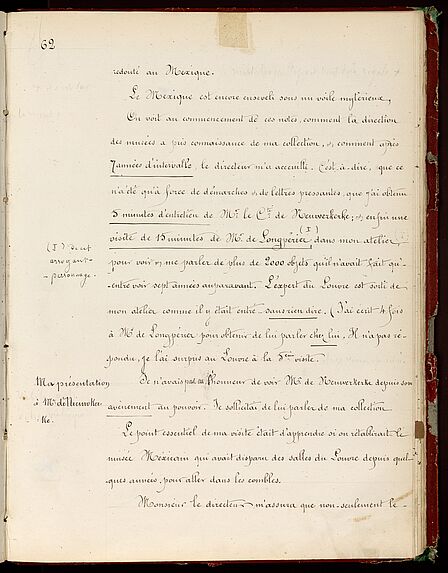 62
redouté au Mexique.
Le Mexique est encore enseveli sous un voile mystérieux.
On voit au commencement de ces notes, comment la direction
des musées a pris connaissance de ma collection, et, comment après
7 années d'intervalle, le directeur m'a accueilli. C'est-à-dire, que ce
n'a été qu'à force de démarches et de lettres pressantes, que j'ai obtenu
5 minutes d'entretien de Mr. le Cte. de Neuwerkerke; et enfin une
visite de 15 minutes de Mr. de Longpérier (I) dans mon atelier,
pour voir et me parler de plus de 2000 objets qu'il n'avait fait qu'
entrevoir sept années auparavant. L'expert du Louvre est sorti de
mon atelier comme il y était entré sans rien dire. (J'ai écrit 4 fois
à Mr. de Longpérier pour obtenir de lui parler chez lui. Il n'a pas ré-
pondu, je l'ai surpris au Louvre à la 5ème visite.
(I) Petit
arrogant
personnage.
Ma présentation
à Mr. de Nieuwker-
ke.
Je n'avais pas eu l'honneur de voir Mr. de Neuwerkerke depuis son
avenement au pouvoir. Je sollicitai de lui parler de ma collection.
Le point essentiel de ma visite était d'apprendre si on rétablirait le
musée Mexicain qui avait disparu des salles du Louvre depuis quel-
ques années, pour aller dans les combles.
Monsieur le directeur m'assura que non-seulement le